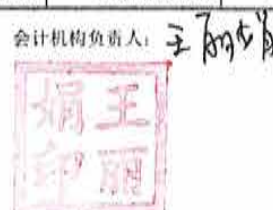 会计机构负责人：王丽娟
王丽
娟印